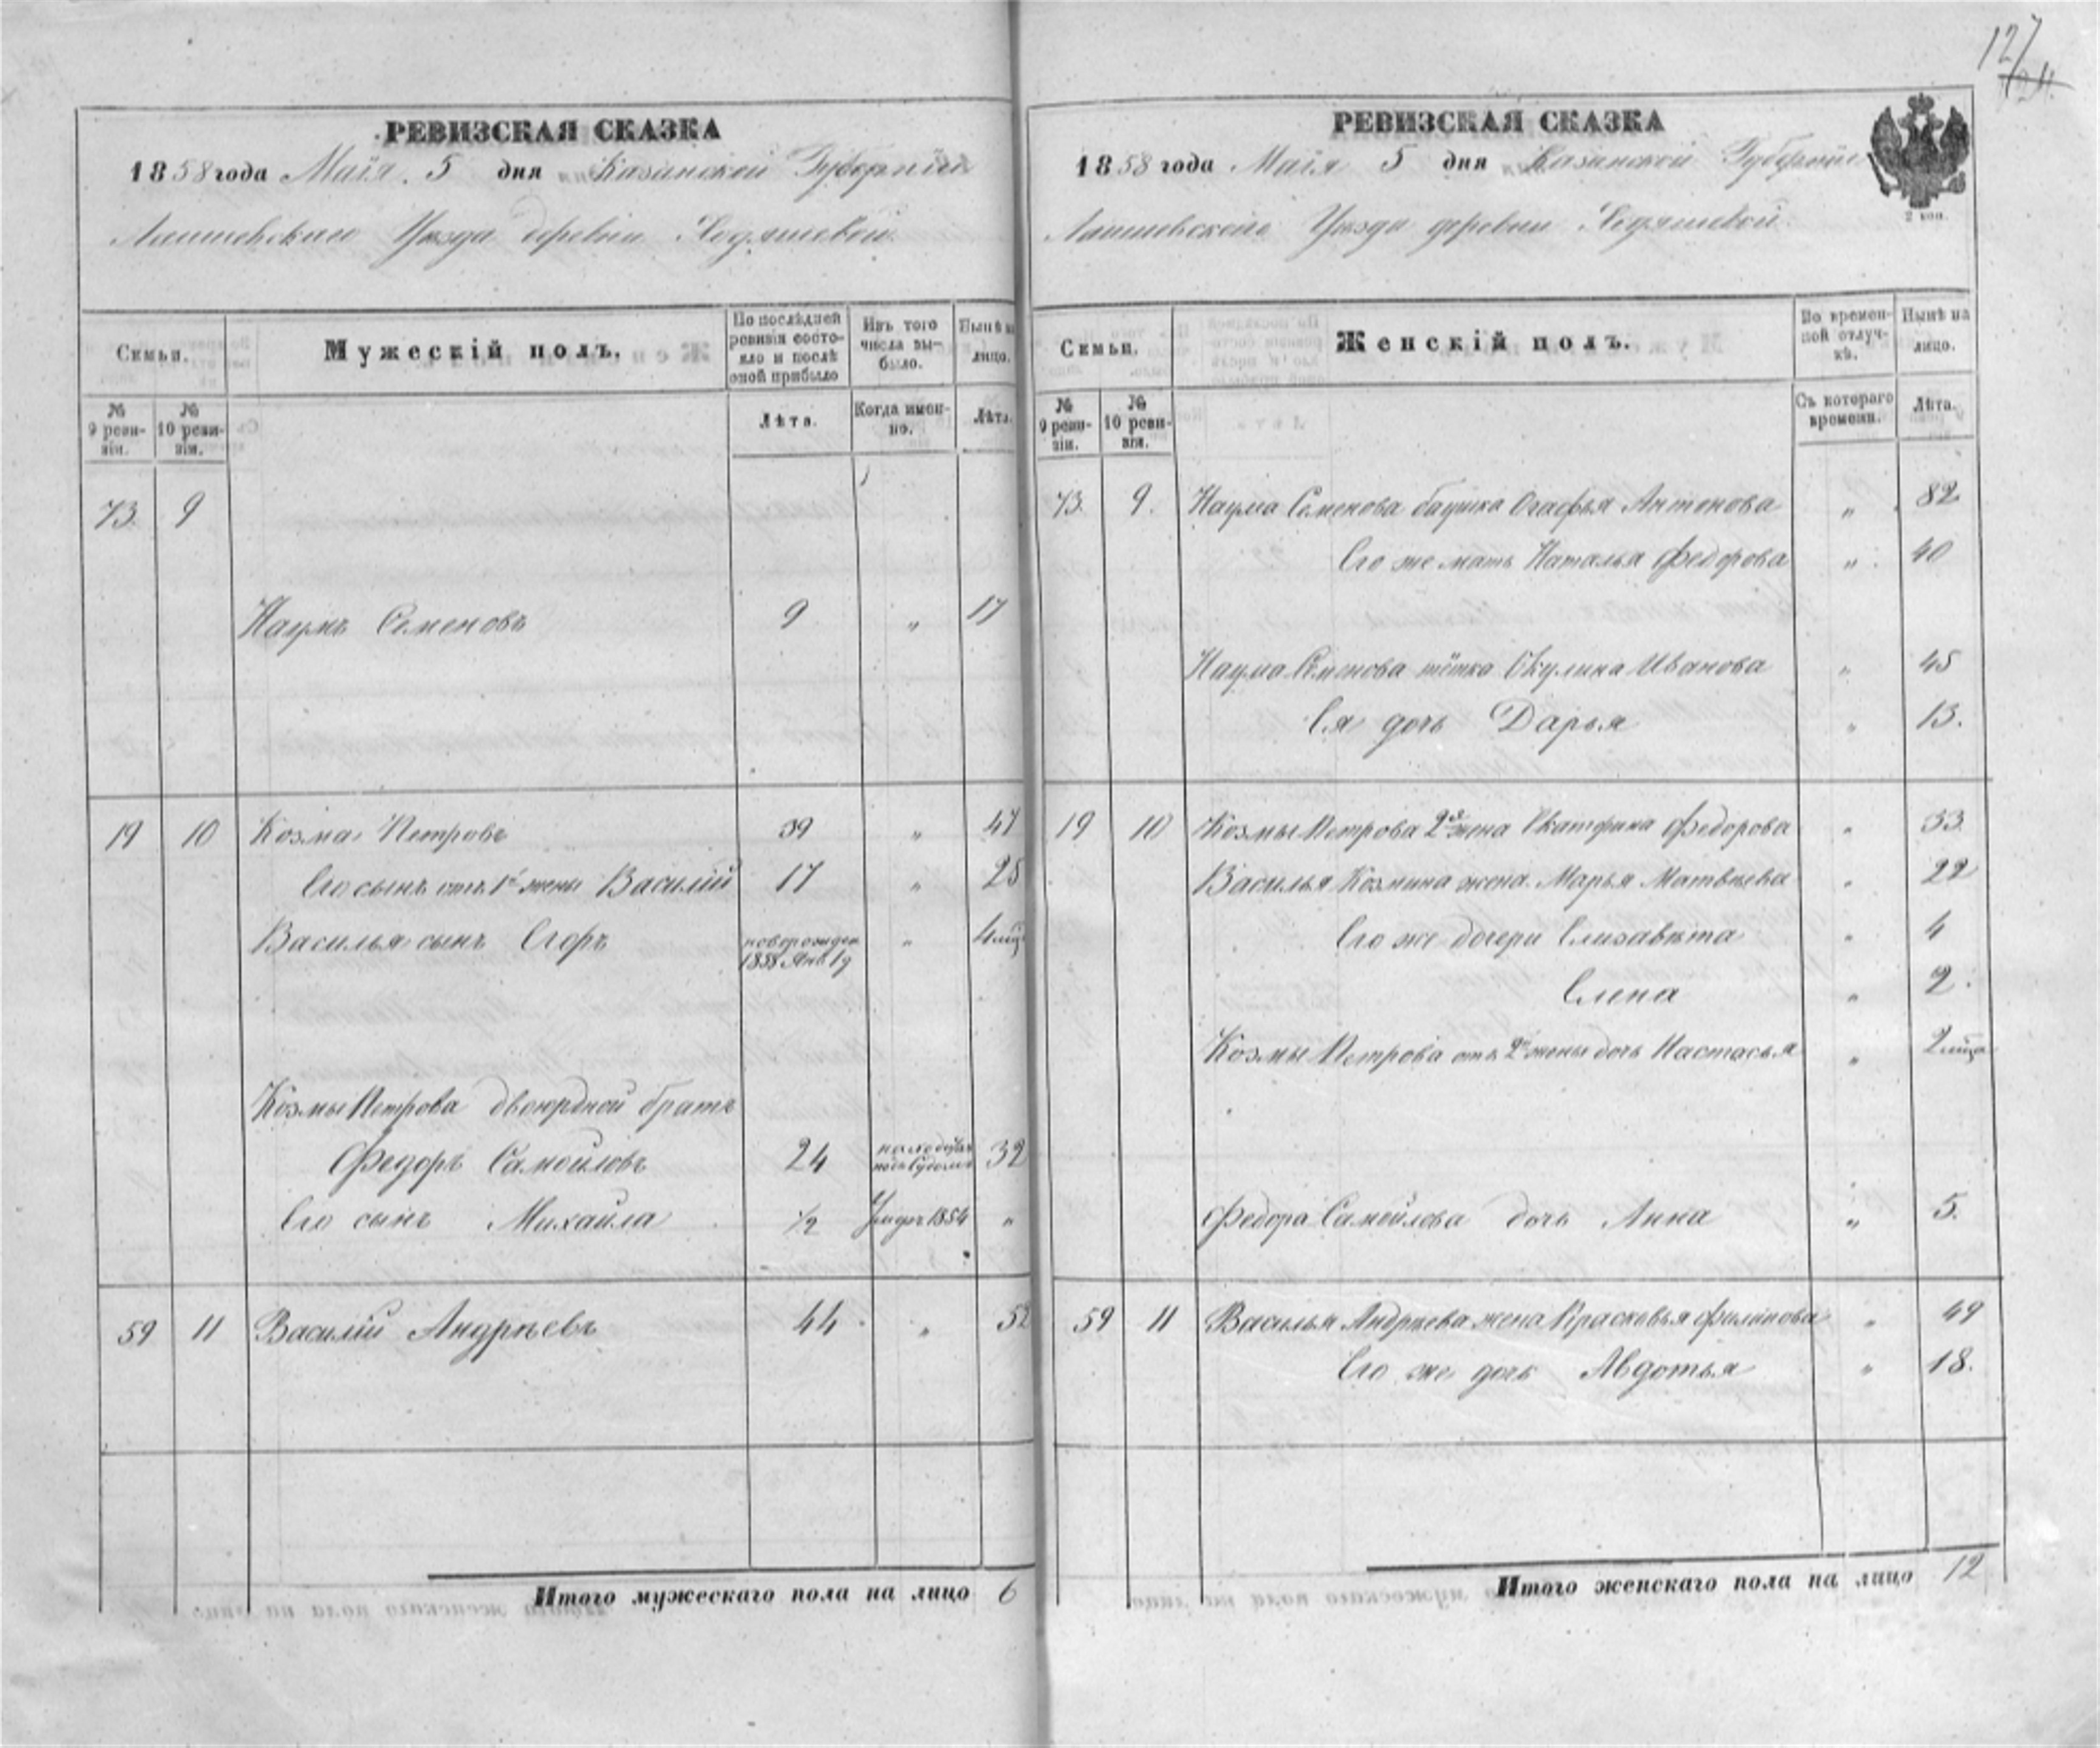 127
РЕВИЗСКАЯ СКАЗКА
1858 года Маія 5 дня Казанской Губерніи
Лаишевскаго Уѣзда деревни
Семьи.
Мужескій полъ.
По послѣдней ревизіи состояло и послѣ оной прибыло
Изъ того числа выбыло.
Нынѣ на лицо.
№ 9 ревизіи.
№ 10 ревизіи.
Лѣта.
Когда именно.
Лѣта.
73 9
Наумъ Семеновъ 9 „ 17
19 10 Козма Петровъ 39 „ 47
Его сынъ отъ 1й жены Василій 17 „ 25
Василья сынъ Егоръ новорожден 1858 Янв 19 „ 4 мѣс
Козмы Петрова двоюродной братъ
Федоръ Самойловъ 24 находится подъ Судомъ 32
Его сынъ Михаила ½ Умеръ 1854 „
59 11 Василій Андрѣевъ 44 „ 52
Итого мужескаго пола на лицо 6
РЕВИЗСКАЯ СКАЗКА
1858 года Маія 5 дня Казанской Губерніи
2 коп.
Лаишевскаго Уѣзда деревни
Семьи.
Женскій полъ.
Во временной отлучкѣ.
Нынѣ на лицо.
№ 9 ревизіи.
№ 10 ревизіи.
Съ котораго времени.
Лѣта.
73. 9. Наума Семенова бабушка Огафья Антонова „ 82
Его же мать Наталья Федорова „ 40
Наума Семенова тётка Окулина Иванова „ 45
Ея дочь Дарья „ 13.
19 10 Козмы Петрова 2я жена Екатерина Федорова „ 33
Василья Козмина жена Марья Матвѣева „ 22
Его же дочери Елизавѣта „ 4
Елена „ 2.
Козмы Петрова отъ 2й жены дочь Настасья „ 2 мѣсца
Федора Самойлова дочь Анна „ 5.
59 11 Василья Андрѣева жена Прасковья Филипова „ 49
Его же дочь Авдотья „ 18.
Итого женскаго пола на лицо 12